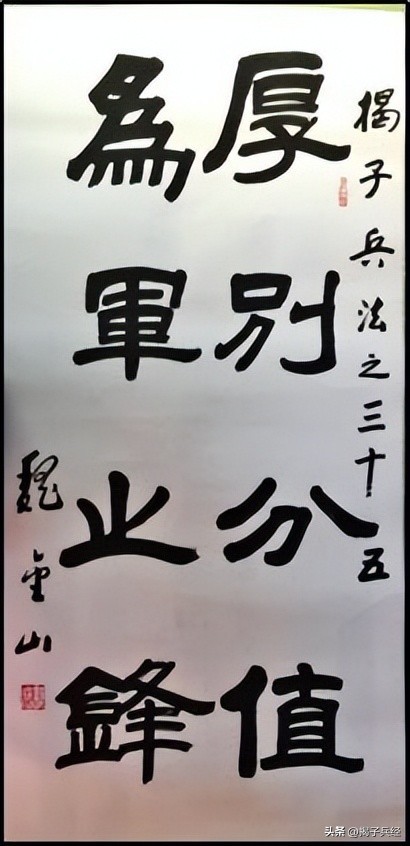 揭子兵法之三十五
厚别分值
為軍止鋒
魏金山
头条 @揭子兵经